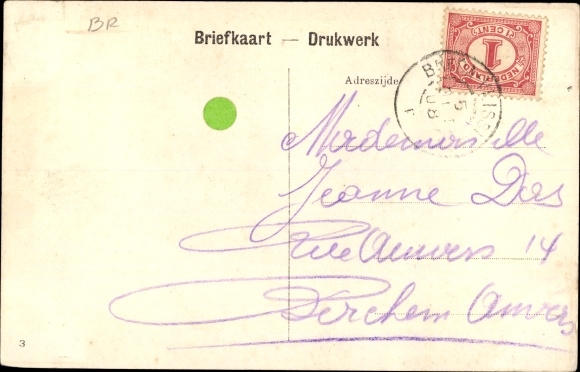 BR
Briefkaart — Drukwerk
Adreszijde
1 CENT
1
NEDERLAND
Mademoiselle
Jeanne Das
Rue Anvers 14
Berchem Anvers
3